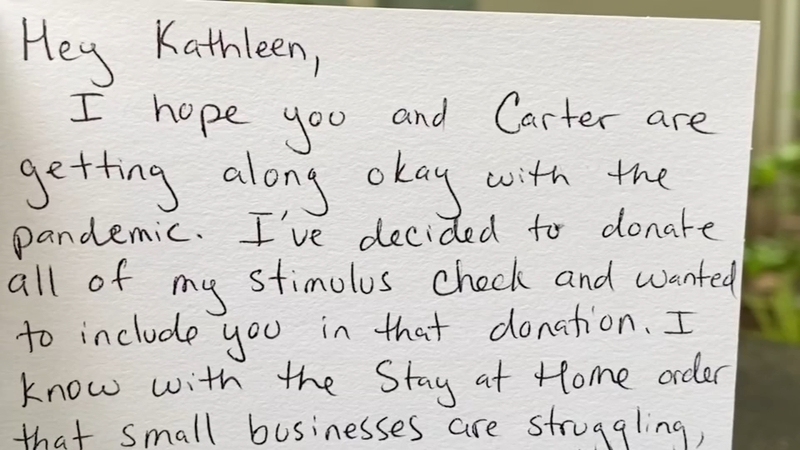 Hey Kathleen,
I hope you and Carter are
getting along okay with the
pandemic. I've decided to donate
all of my stimulus check and wanted
to include you in that donation. I
know with the Stay at Home order
that small businesses are struggling,